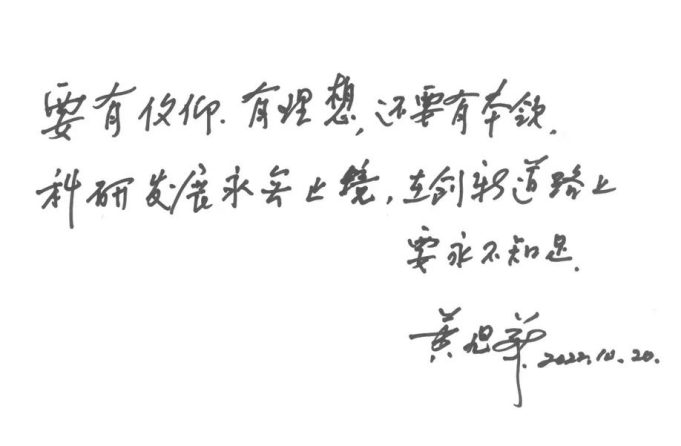 要有信仰、有理想,还要有本领,
科研发展永无止境,在创新道路上
要永不知足.
黄旭华 2022.10.20.